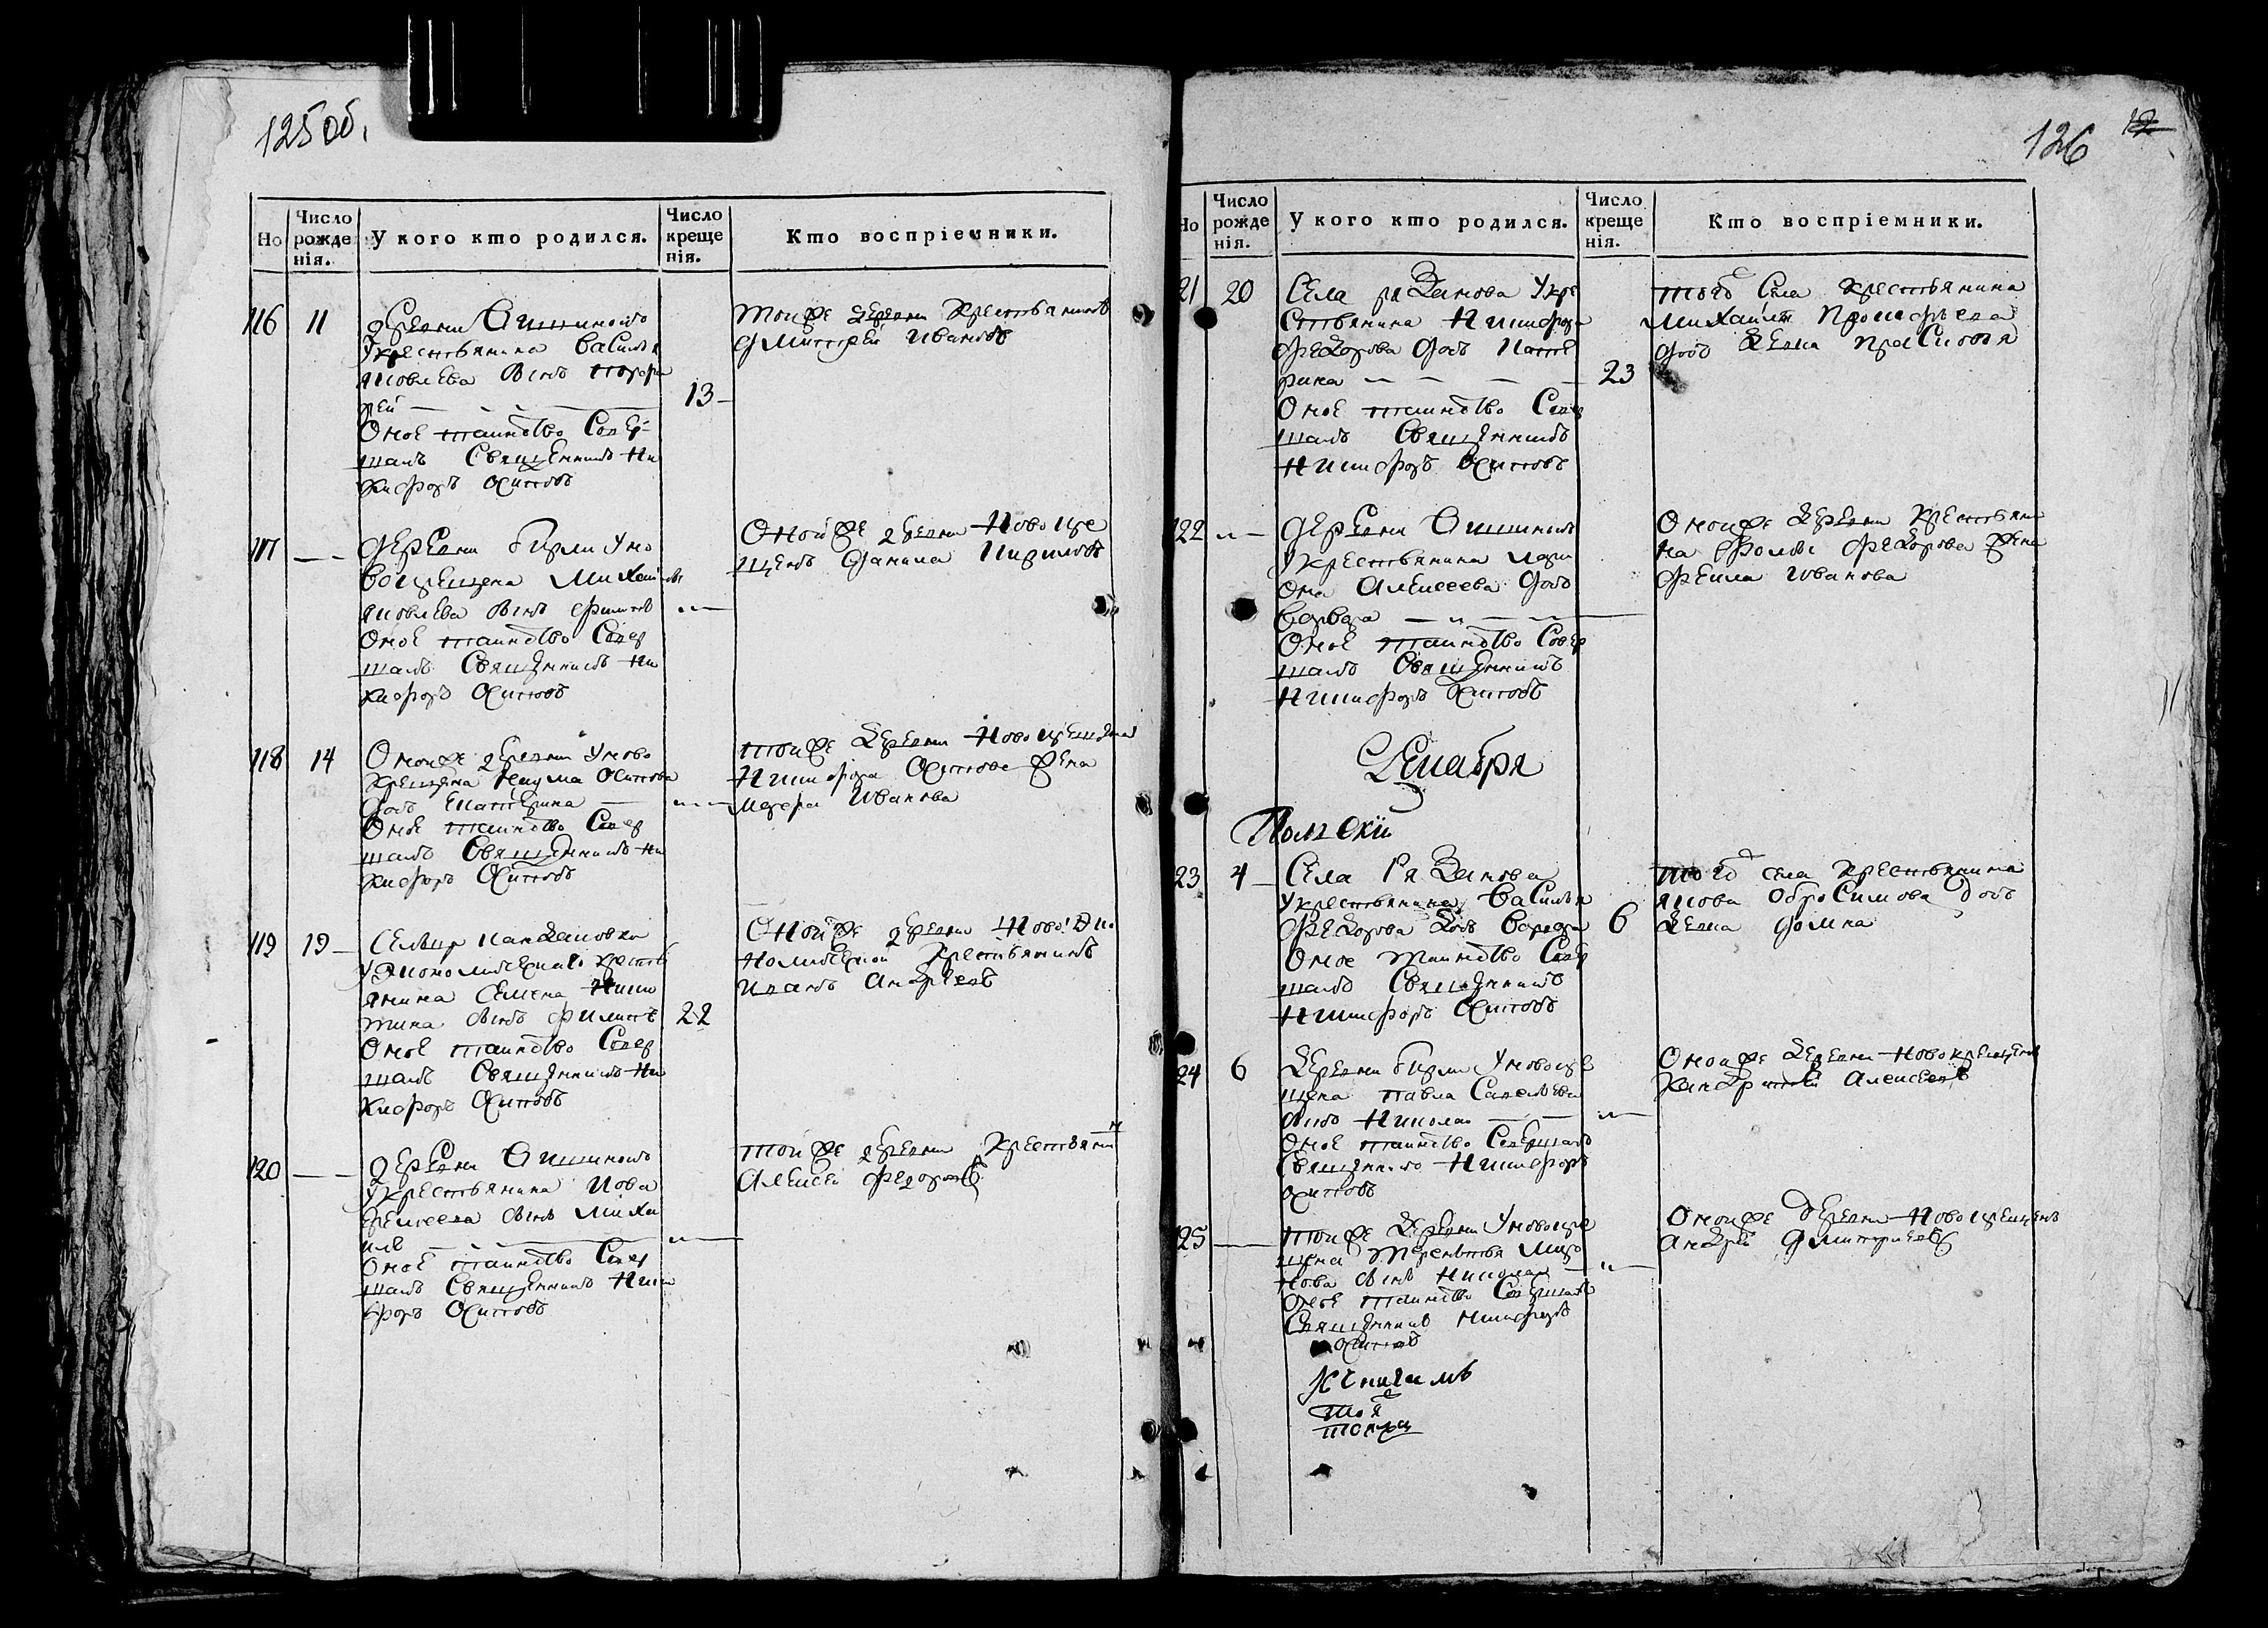 125 об.
Но
Число рожденія.
У кого кто родился.
Число крещенія.
Кто воспріемники.
116
11
деревни
у крестьянина Василья
Яковлева сынъ
рей
13
Оное таинство Совер
шалъ Священникъ Ни
кифоръ Осиповъ
тойже деревни крестьянинъ
Дмитрей Ивановъ
117
деревни Бирли у но
вокрещена Михаила
Яковлева сынъ Филипъ
Оное таинство Совер
шалъ Священникъ Ни
кифоръ Осиповъ
Онойже деревни Новокре
щенъ Данила Кириловъ
118
14
Онойже деревни у ново
крещена Наума Осипова
дочь Екатерина
Оное таинство Совер
шалъ Священникъ Ни
кифоръ Осиповъ
тойже деревни Новокрещена
Никифора Осипова жена
Иванова
119
19
у экономическаго кресть
янина Семена Ники
тина сынъ Филипъ
22
Оное таинство Совер
шалъ Священникъ Ни
кифоръ Осиповъ
Онойже деревни
крестьянинъ
Иванъ Андреевъ
120
деревни
у крестьянина Иова
Еремеева сынъ Миха
илъ
Оное таинство Совер
шалъ Священникъ Ники
форъ Осиповъ
тойже деревни крестьянинъ
Алексей Федоровъ
126
12
Но
Число рожденія.
У кого кто родился.
Число крещенія.
Кто воспріемники.
21
20
Села Рязанова у кре
стьянина Никифора
Федорова дочь Кате
рина
23
Оное таинство Совер
шалъ Священникъ
Никифоръ Осиповъ
того Села крестьянина
Михаила Прокофьева
дочь девка Прасковья
122
деревни
у крестьянина Лари
она Алексеева дочь
Варвара
Оное таинство Совер
шалъ Священникъ
Никифоръ Осиповъ
Онойже деревни крестьяни
на Фомы Федорова жена
Фекла Иванова
Декабря
23
4
Села Рязанова
у крестьянина Василья
Федорова дочь Варвара
6
Оное таинство Совер
шалъ Священникъ
Никифоръ Осиповъ
того села крестьянина
Якова Обросимова дочь
девка Домна
24
6
деревни Бирли у новокре
щена Павла Савельева
сынъ Николай
Оное таинство Совершалъ
Священникъ Никифоръ
Осиповъ
Онойже деревни Новокрещенъ
Кандратей Алексеевъ
25
тойже деревни у новокре
щена Терентья Миро
нова сынъ Николай
Оное таинство Совершалъ
Священникъ Никифоръ
Осиповъ
Онойже деревни Новокрещенъ
Андрей Дмитриевъ